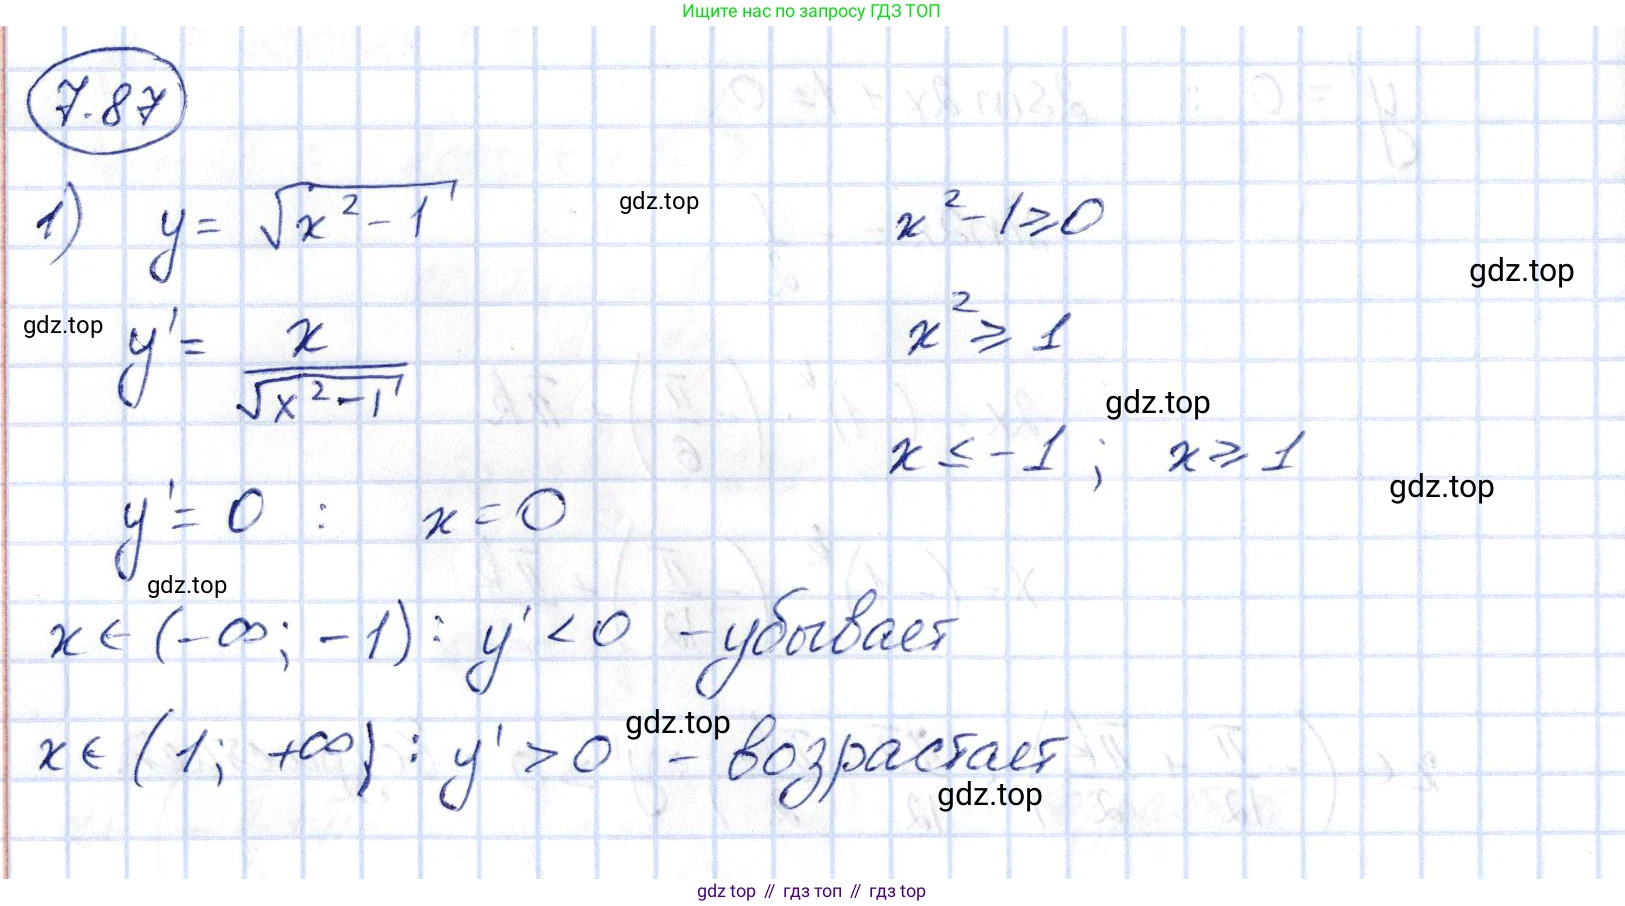 Ищите нас по запросу ГДЗ ТОП
7.87
1) y = √(x² - 1) gdz.top x² - 1 ≥ 0
gdz.top
gdz.top y' = x / √(x² - 1) x² ≥ 1
gdz.top
x ≤ -1 ; x ≥ 1
gdz.top
y' = 0 : x = 0
gdz.top
x ∈ (-∞; -1) : y' < 0 - убывает
gdz.top
x ∈ (1; +∞) : y' > 0 - возрастает
gdz.top
gdz top // гдз топ // гдз top